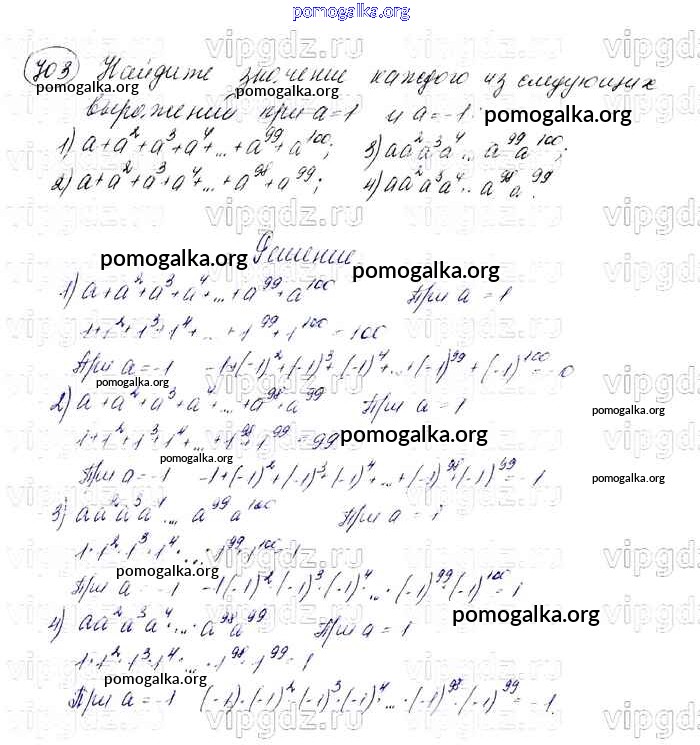 pomogalka.org
703 Найдите значение каждого из следующих
pomogalka.org pomogalka.org
выражений при a=1 и a=-1: pomogalka.org
1) a+a²+a³+a⁴+...+a⁹⁹+a¹⁰⁰; 3) aa²a³a⁴...a⁹⁹a¹⁰⁰;
2) a+a²+a³+a⁴+...+a⁹⁸+a⁹⁹; 4) aa²a³a⁴...a⁹⁸a⁹⁹.
vipgdz.ru vipgdz.ru vipgdz.ru
Решение
pomogalka.org pomogalka.org
1) a+a²+a³+a⁴+...+a⁹⁹+a¹⁰⁰ При a=1
1+1²+1³+1⁴+...+1⁹⁹+1¹⁰⁰=100
При a=-1 -1+(-1)²+(-1)³+(-1)⁴+...+(-1)⁹⁹+(-1)¹⁰⁰=0
pomogalka.org
2) a+a²+a³+a⁴+...+a⁹⁸+a⁹⁹ При a=1
pomogalka.org
1+1²+1³+1⁴+...+1⁹⁸+1⁹⁹=99 pomogalka.org
pomogalka.org
При a=-1 -1+(-1)²+(-1)³+(-1)⁴+...+(-1)⁹⁸+(-1)⁹⁹=-1
pomogalka.org
3) aa²a³a⁴...a⁹⁹a¹⁰⁰ При a=1
1·1²·1³·1⁴·...·1⁹⁹·1¹⁰⁰=1
pomogalka.org
При a=-1 -1(-1)²·(-1)³·(-1)⁴·...·(-1)⁹⁹·(-1)¹⁰⁰=1
4) aa²a³a⁴·...·a⁹⁸a⁹⁹ При a=1 pomogalka.org
1·1²·1³·1⁴·...·1⁹⁸·1⁹⁹=1
pomogalka.org
При a=-1 (-1)·(-1)²·(-1)³·(-1)⁴·...·(-1)⁹⁸·(-1)⁹⁹=-1.